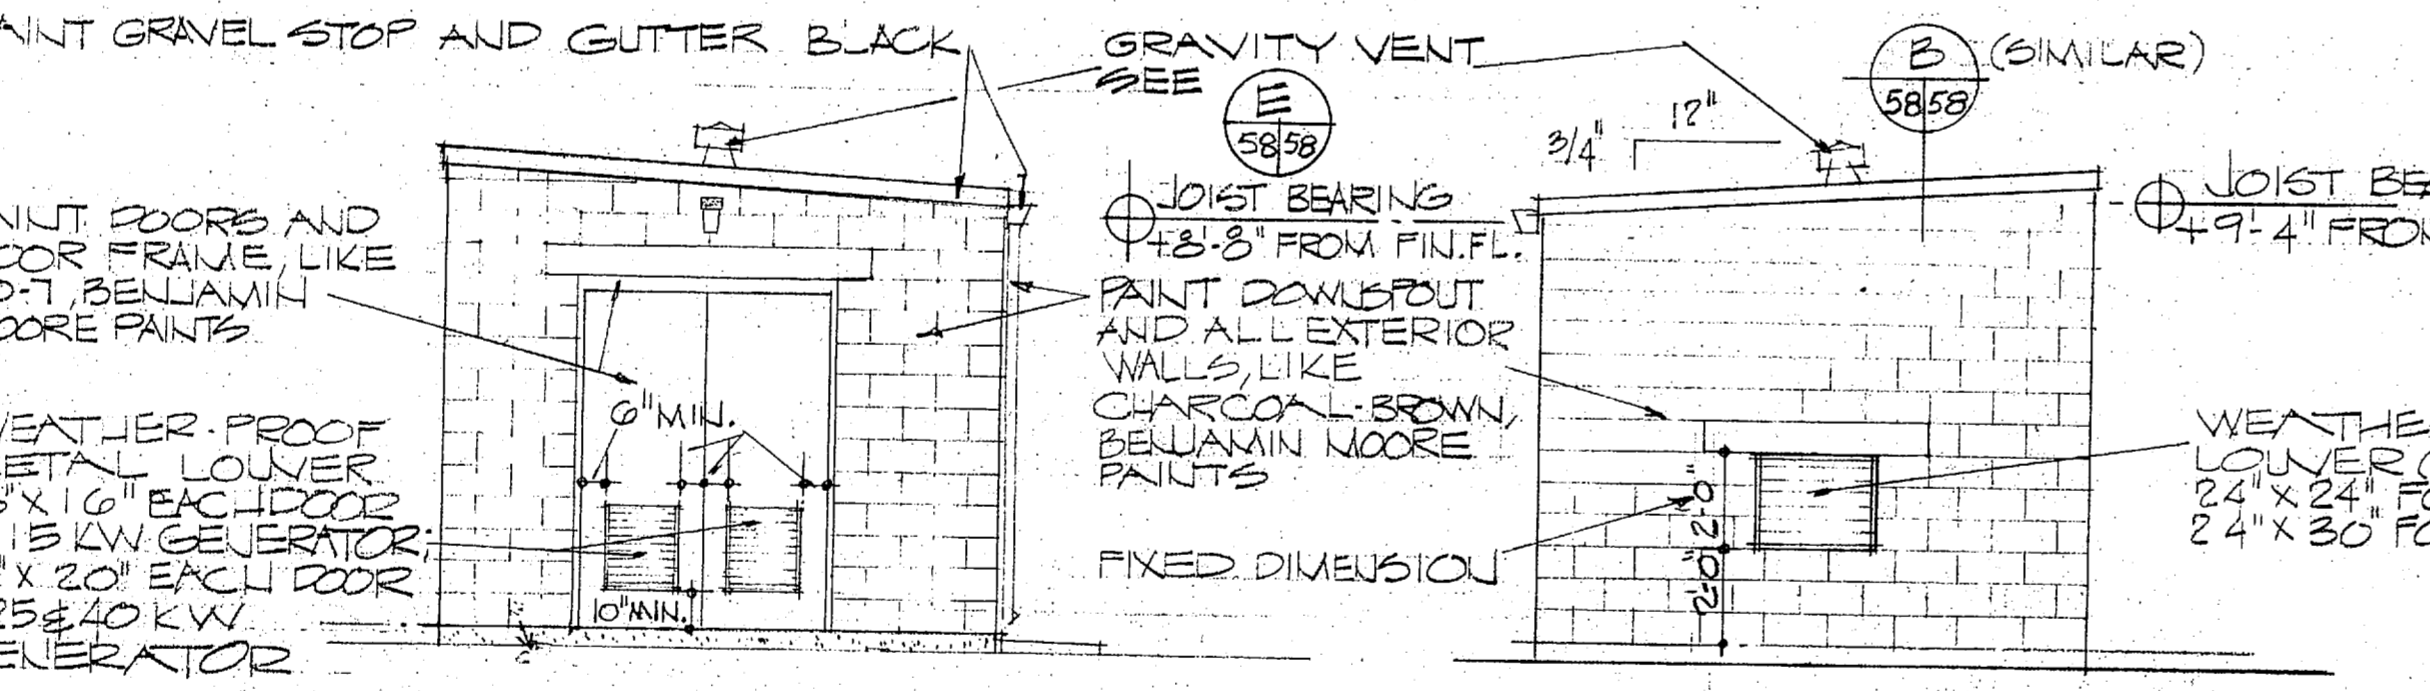 AINT GRAVEL STOP AND GUTTER BLACK
GRAVITY VENT
SEE
E
58 58
B (SIMILAR)
58 58
3/4" 12"
JOIST BEARING
+8'-8" FROM FIN. FL.
JOIST BEA
+9'-4" FROM
AINT DOORS AND
OOR FRAME, LIKE
D-7, BENJAMIN
OORE PAINTS
6" MIN.
PAINT DOWNSPOUT
AND ALL EXTERIOR
WALLS, LIKE
CHARCOAL-BROWN,
BENJAMIN MOORE
PAINTS
WEATHER-PROOF
METAL LOUVER
6" X 16" EACH DOOR
15 KW GENERATOR;
" X 20" EACH DOOR
25 & 40 KW
ENERATOR
10" MIN.
FIXED DIMENSION
2'-0"
2'-0"
WEATHE
LOUVER
24" X 24" FO
24" X 30" FO